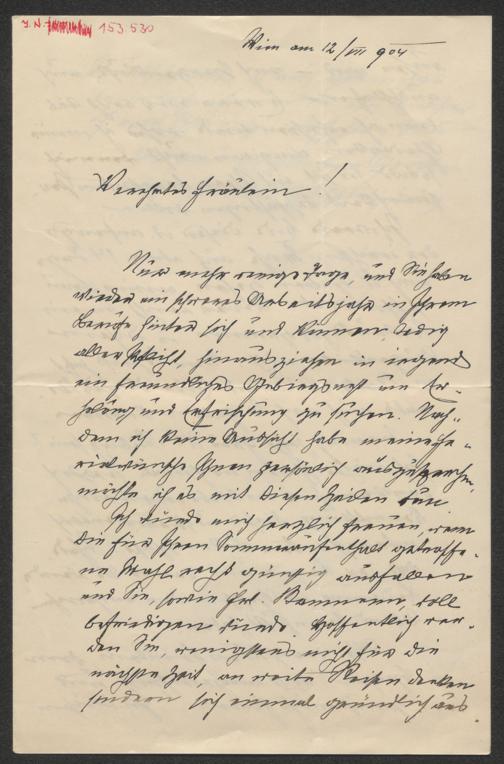 J. N. 153.530
Wien am 12/VII 904
Verehrtes Fräulein!
Nur mehr einige Tage, und Sie haben
wieder ein schweres Arbeitsjahr in Ihrem
Berufe hinter sich und können, ledig
aller Pflicht, hinausziehen in irgend
ein freundliches Gebirgsnest um Er-
holung und Erfrischung zu suchen. Nach-
dem ich keine Aussicht habe meine Fe-
rienwünsche Ihnen persönlich auszusprechen,
möchte ich es mit diesen Zeilen tun
Ich würde mich herzlich freuen, wenn
die für Ihren Sommeraufenthalt getroffe-
ne Wahl recht günstig ausfallen
und Sie, sowie Frl. voll
befriedigen würde. Hoffentlich wer-
den Sie, wenigstens nicht für die
nächste Zeit, an weite Reisen denken
sondern sich einmal gründlich aus